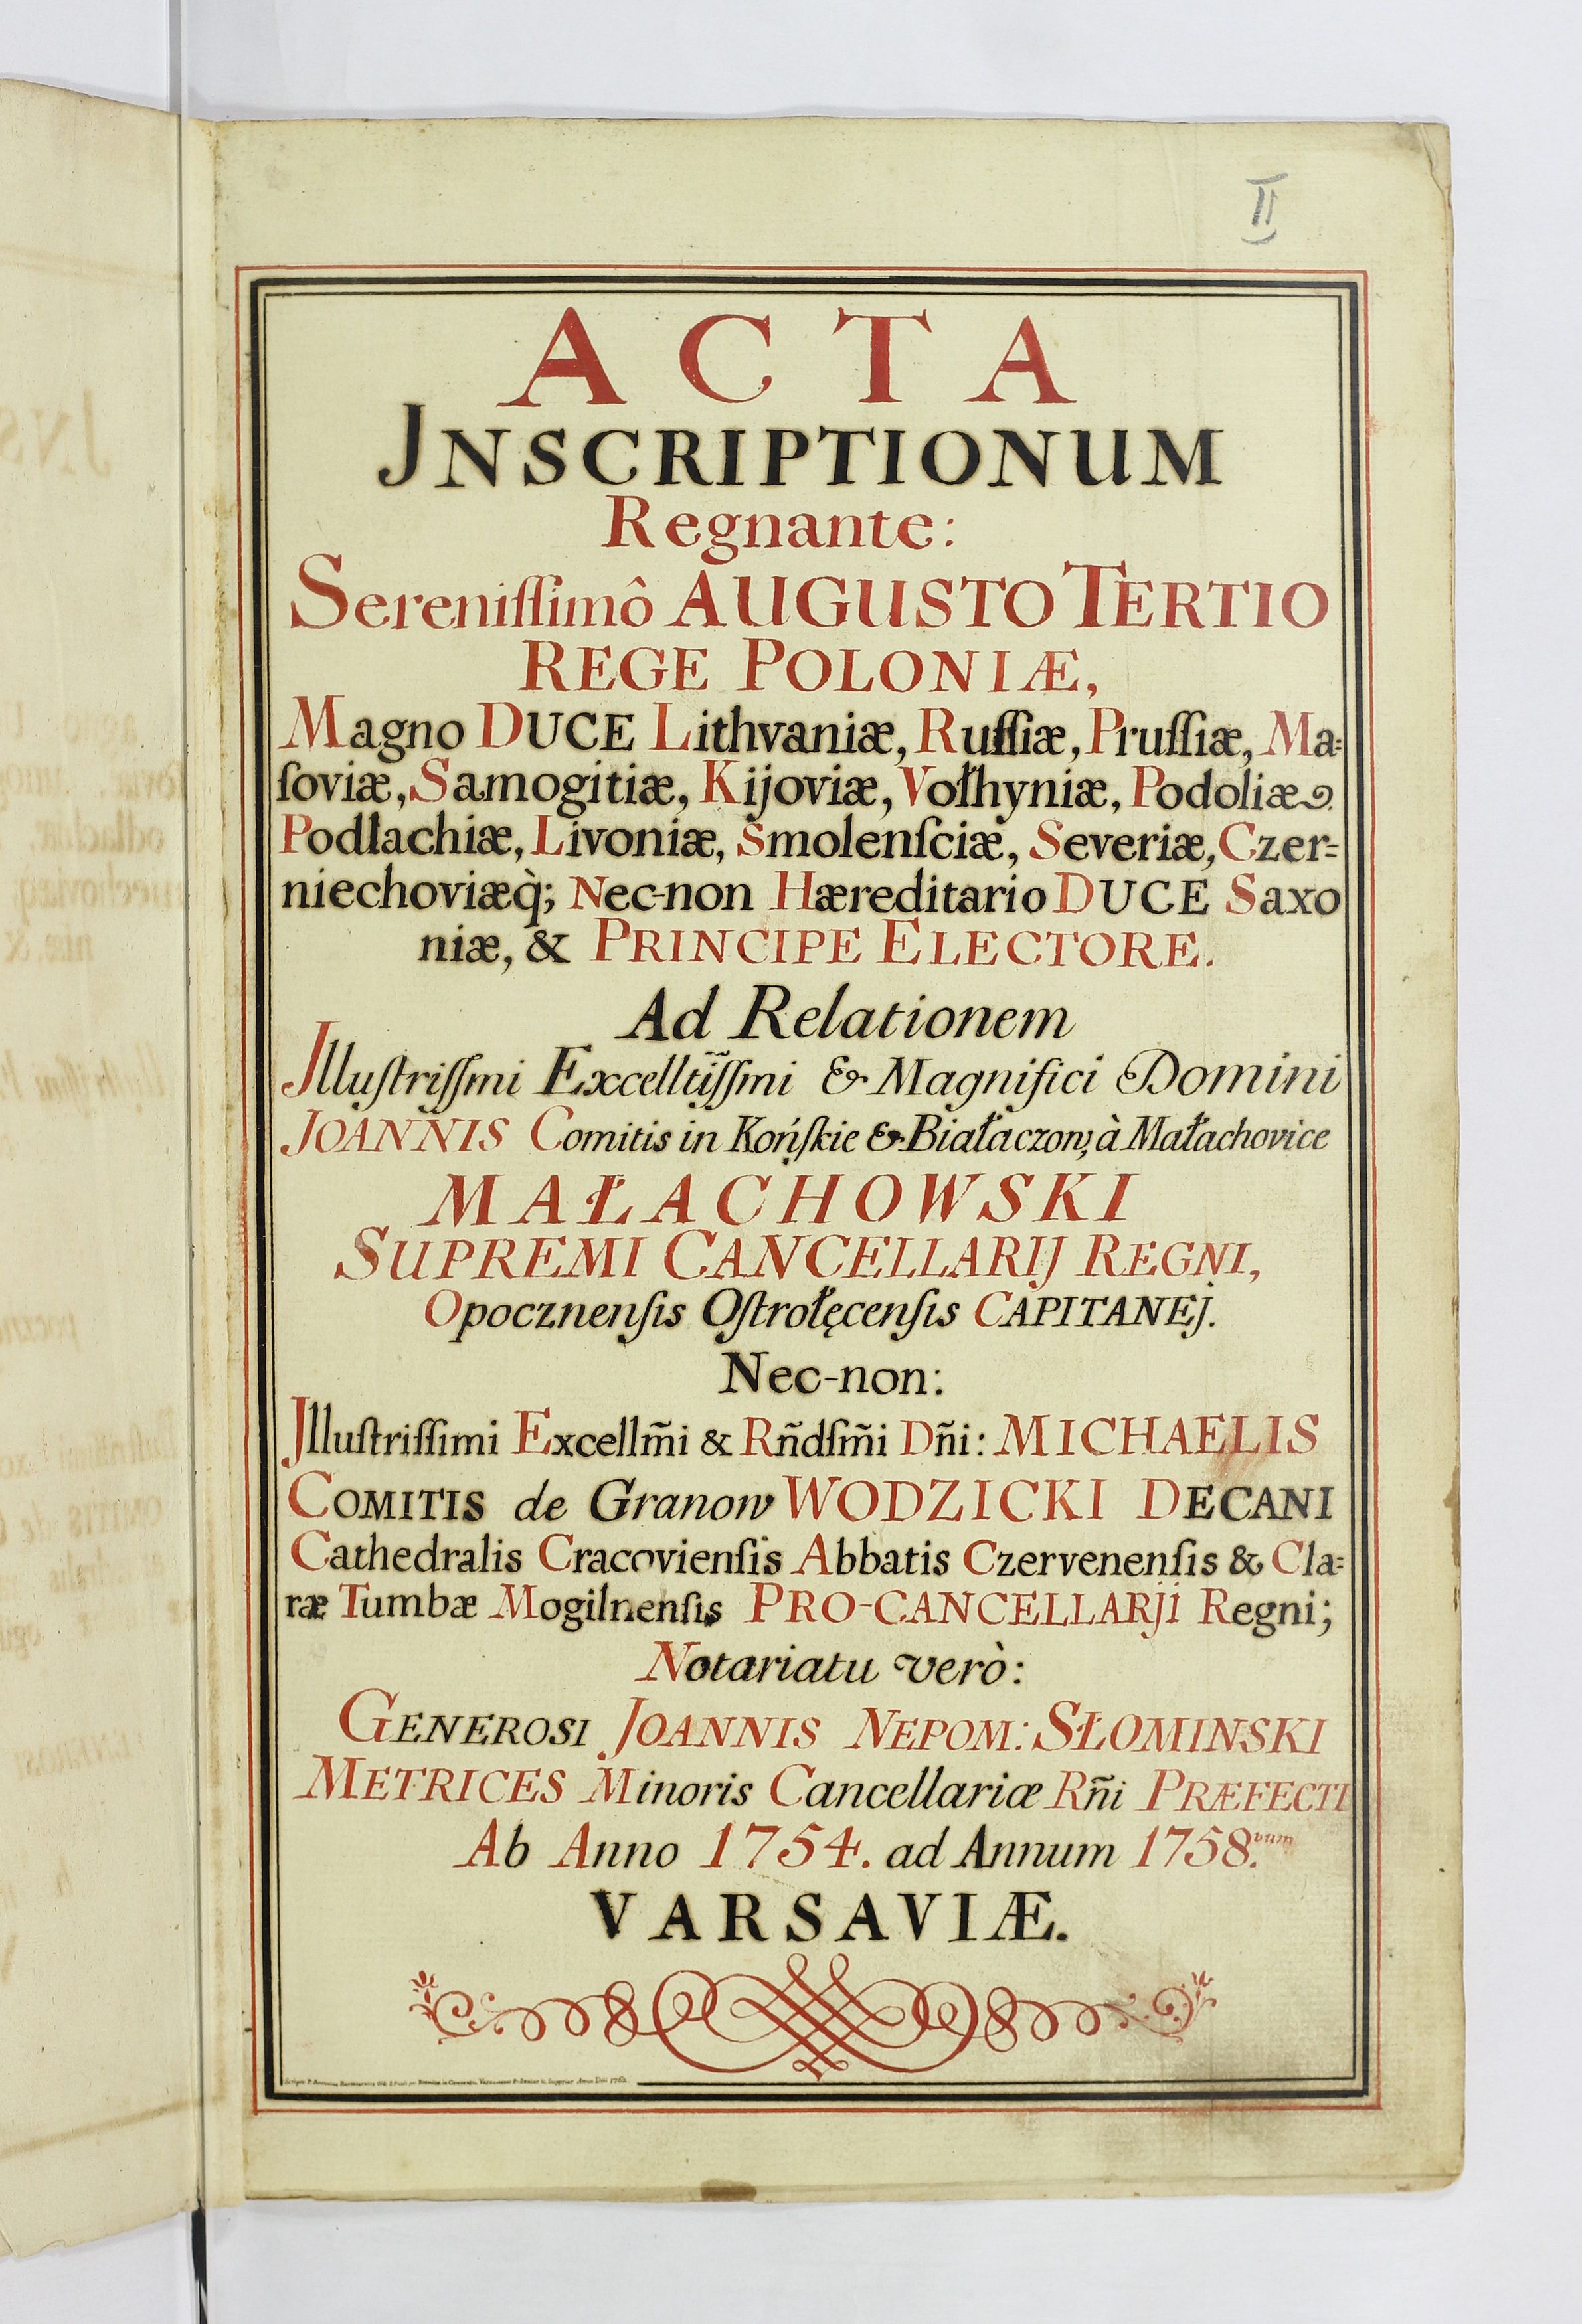 II
ACTA
JNSCRIPTIONUM
Regnante:
Sereniſſimô AUGUSTO TERTIO
REGE POLONIÆ,
Magno DUCE Lithvaniæ, Ruſſiæ, Pruſſiæ, Ma=
ſoviæ, Samogitiæ, Kijoviæ, Vołhyniæ, Podoliæ
Podlachiæ, Livoniæ, Smolenſciæ, Severiæ, Czer=
niechoviæq̀; Nec-non Hæreditario DUCE Saxo
niæ, & PRINCIPE ELECTORE.
Ad Relationem
Jlluſtriſſmi Excellti̇̃ſſmi & Magnifici Domini
JOANNIS Comitis in Końſkie & Białaczow, à Małachovice
MAŁACHOWSKI
SUPREMI CANCELLARIJ REGNI,
Opocznenſis Oſtrołęcenſis CAPITANEJ.
Nec-non:
Jlluſtriſſimi Excellm̃i & Rñdſm̃i Dñi: MICHAELIS
COMITIS de Granow WODZICKI DECANI
Cathedralis Cracovienſis Abbatis Czervenenſis & Cla=
ræ Tumbæ Mogilnenſis PRO-CANCELLARJI Regni;
Notariatu verò:
GENEROSI JOANNIS NEPOM: SŁOMINSKI
METRICES Minoris Cancellariæ Rñi PRÆFECTI
Ab Anno 1754. ad Annum 1758.vum
VARSAVIÆ.